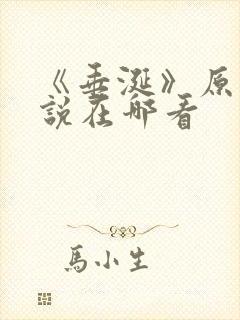 《垂涎》原
說在哪看
馬小生